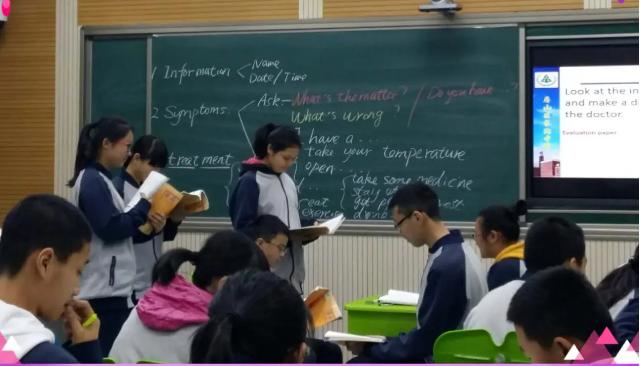 1 Information < Name
Date/Time
2 Symptoms
Ask - What's the matter? / Do you have ...?
What's wrong?
I have a ...
treatment
take your temperature
open ...
...
take some medicine
stay
get
eat
exercise
drink
Look at the in
and make a d
the doctor.
Evaluation paper